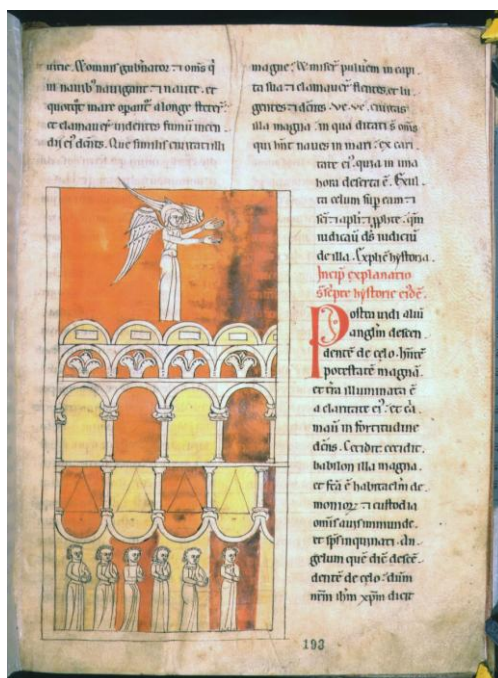 uirie. & omnis gub̄nator ⁊ om̄s q̄
in nauib⁹ nauigant ⁊ naute. et
quotq̄ȝ mare opant̄ a longe steter̄t
et clamauer̄ uidentes fumū incen
dii ei⁹ dc̄ntes. Que similis ciuitati illi
magne. & miser̄ puluem in capi
ta sua ⁊ clamauer̄ flentes. et lu
gentes ⁊ dc̄ntes. ve. ve. ciuitas
illa magna. in qua ditati s̄ om̄s
qui hn̄t naues in mari. ex cari
tate ei⁹. quia in una
hora deserta ē. Exul
ta celum sup eam ⁊
sc̄i ⁊ apl̄i ⁊ ꝓphte. qm̄
iudicaū ds̄ iudiciū
de illa. Explic̄ hystoria.
Incip̄ explanatio
sup̄ hystorie eidē.
Postea uidi aliū
angl̄m descen
dentē de celo. hn̄tē
potestatē magnā.
et t̄ra illuminata ē
a claritate ei⁹. et cla
mauit in fortitudine
dc̄ns. Cecidit cecidit
babilon illa magna.
et fc̄a ē habitaclm̄ de
monior̄ ⁊ custodia
omis auis inmunde.
et sp̄s inquinati. An
gelum quē dic̄ descē
dentē de celo. dn̄m
nr̄m ih̄m xp̄m dicit
193